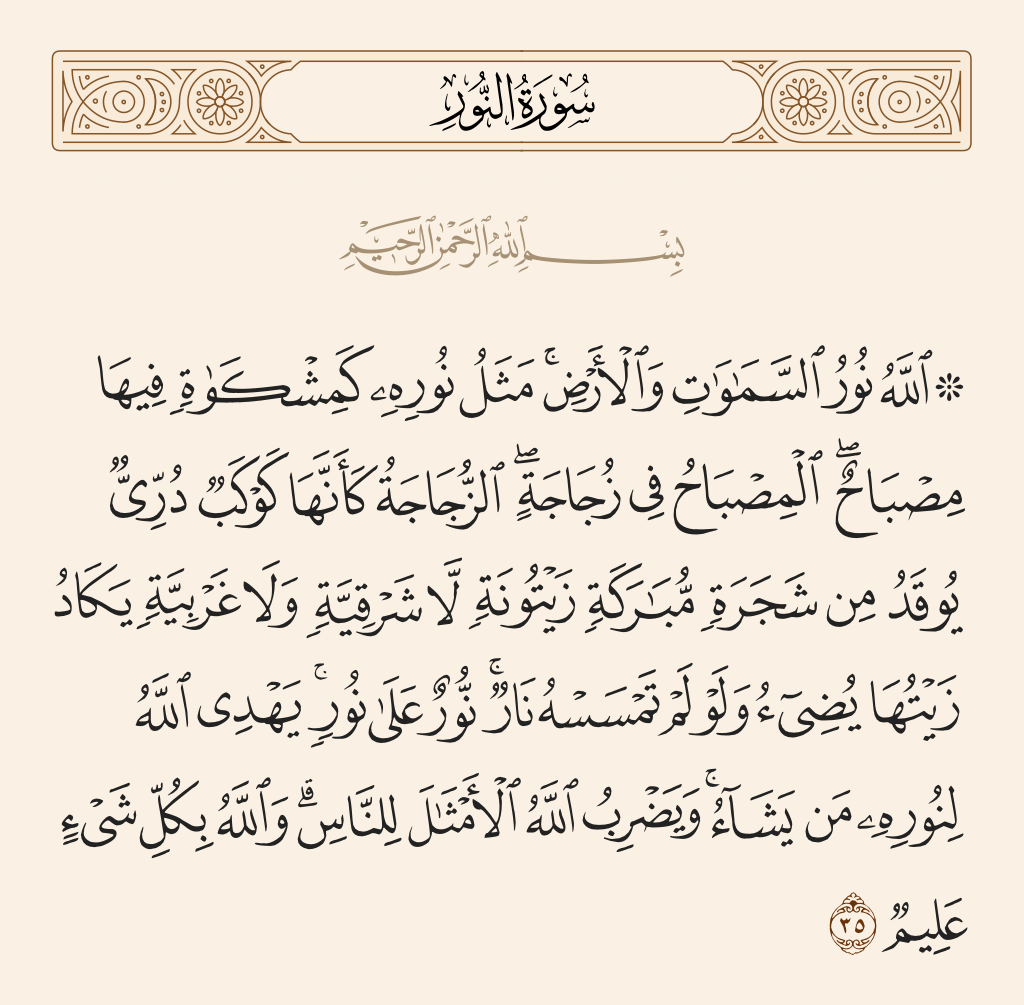 سُورَةُ النُّورِ
بِسْمِ ٱللَّهِ ٱلرَّحْمَٰنِ ٱلرَّحِيمِ
۞ ٱللَّهُ نُورُ ٱلسَّمَٰوَٰتِ وَٱلْأَرْضِ ۚ مَثَلُ نُورِهِۦ كَمِشْكَوٰةٍ فِيهَا
مِصْبَاحٌ ۖ ٱلْمِصْبَاحُ فِى زُجَاجَةٍ ۖ ٱلزُّجَاجَةُ كَأَنَّهَا كَوْكَبٌ دُرِّىٌّ
يُوقَدُ مِن شَجَرَةٍ مُّبَٰرَكَةٍ زَيْتُونَةٍ لَّا شَرْقِيَّةٍ وَلَا غَرْبِيَّةٍ يَكَادُ
زَيْتُهَا يُضِىٓءُ وَلَوْ لَمْ تَمْسَسْهُ نَارٌ ۚ نُّورٌ عَلَىٰ نُورٍ ۗ يَهْدِى ٱللَّهُ
لِنُورِهِۦ مَن يَشَآءُ ۚ وَيَضْرِبُ ٱللَّهُ ٱلْأَمْثَٰلَ لِلنَّاسِ ۗ وَٱللَّهُ بِكُلِّ شَىْءٍ
عَلِيمٌ ٣٥